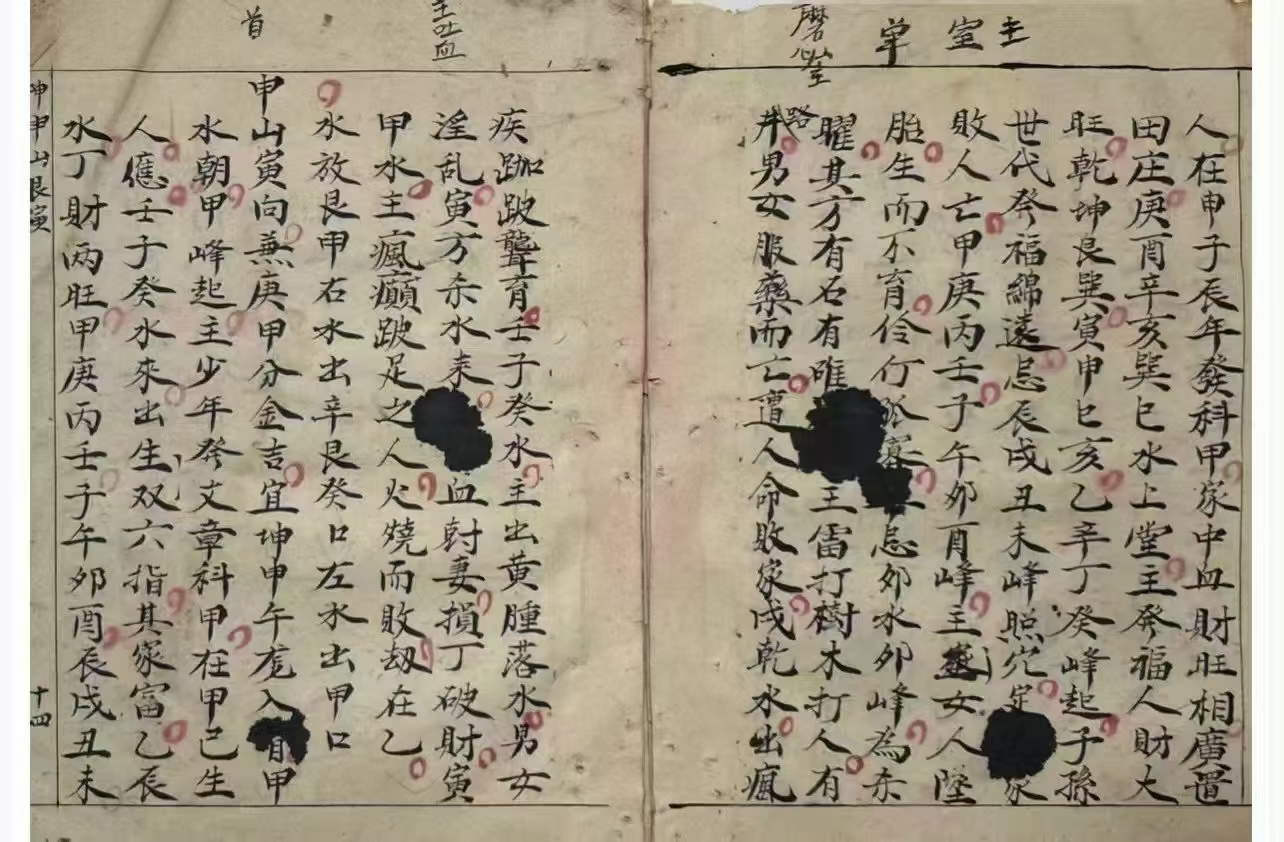 主室单
人在申子辰年發科甲家中血財旺相廣置
田庄庚酉辛亥巽巳水上堂主癸福人財大
旺乾坤艮巽寅申巳亥乙辛丁癸峰起子孫
世代癸福綿遠忌辰戌丑未峰照穴定家
敗人亡甲庚丙壬子午夘酉峰主女人墜
胎生而不育伶仃孤寡忌夘水夘峰為杀
曜其方有石有唯王雷打樹木打人有
路
井男女服藥而亡遭人命敗家戌乾水出瘋
主吐血
首
疾跏跛聾育壬子癸水主出黄腫落水男女
淫乱寅方杀水来血尅妻損丁破財寅
甲水主瘋癲跛足之人火燒而敗刼在乙
水放艮甲右水出辛艮癸口左水出甲口
申山寅向兼庚甲分金吉宜坤申午尨入首甲
水朝甲峰起主少年癸文章科甲在甲己生
人應壬子癸水來出生双六指其家富乙辰
水丁財兩旺甲庚丙壬子午夘酉辰戌丑未
坤申山艮寅
十四